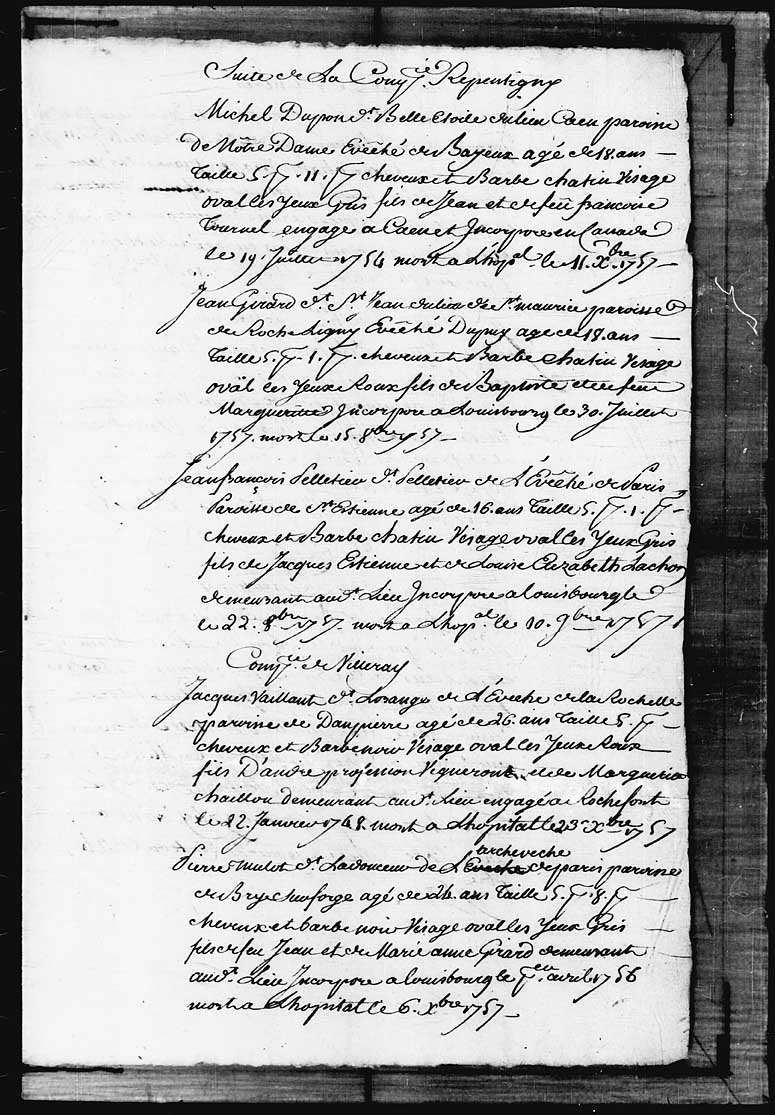 Suite de La Comp.ie Repentigny
Michel Dupon d.t Belle Etoile du lieu Caen paroisse
de Nôtre Dame Evêché de Bayeux agé de 18. ans —
Taille 5. p. 11. p. cheveux et Barbe chatin Visage
oval les yeux Gris fils de Jean et de feüe francoise
Tournel engagé a Caen et Incorporé en Canada
le 19. Juillet 1754 mort a L'hop.al le 11. X.bre 1757 —
Jean Girard d.t S.t Jean du lieu de S.t maurice paroisse
de Roche Ligny Evêché Dupuy agé de 18. ans —
Taille 5. p. 1. p. cheveux et Barbe chatin Visage
oväl les yeux Roux fils de Baptiste et de feüe
Margueritte Incorporé a Louisbourg le 30. Juillet
1757. mort le 15. 8bre 1757 —
Jean francois Pelletier d.t Pelletier de L'Évêché de Paris
Paroisse de S.t Estienne agé de 16. ans Taille 5. p. 1. p. —
cheveux et Barbe chatin Visage oval les yeux Gris
fils de Jacques Estienne et de Louise Elizabeth Lachon
demeurant aud.t Lieu Incorporé a louisbourg le
le 22. 8bre 1757. mort a L'hop.al le 10. 9bre 1757
Comp.ie de Villeray
Jacques Vaillant d.t Losange de L'Eveché de la Rochelle
paroisse de Danpierre agé de 26. ans Taille 5. p. —
cheveux et Barbe noir Visage oval les yeux Roux
fils D'andré profession Vigneront et de Marguerite
chaillou demeurant aud.t Lieu engagé a Rochefort
le 22. Janvier 1748. mort a L'hopital le 23 Xbre 1757
archeveché
Pierre Mulot d.t Ladouceur de L'Eveché de paris paroisse
de Brye agé de 24. ans Taille 5. p. 8. p.
cheveux et barbe noir Visage oval les yeux Gris
fils de feu Jean et de Marie anne Girard demeurant
aud.t Lieu Incorporé a louisbourg le p.er avril 1756
mort a L'hopital le 6. Xbre 1757 —